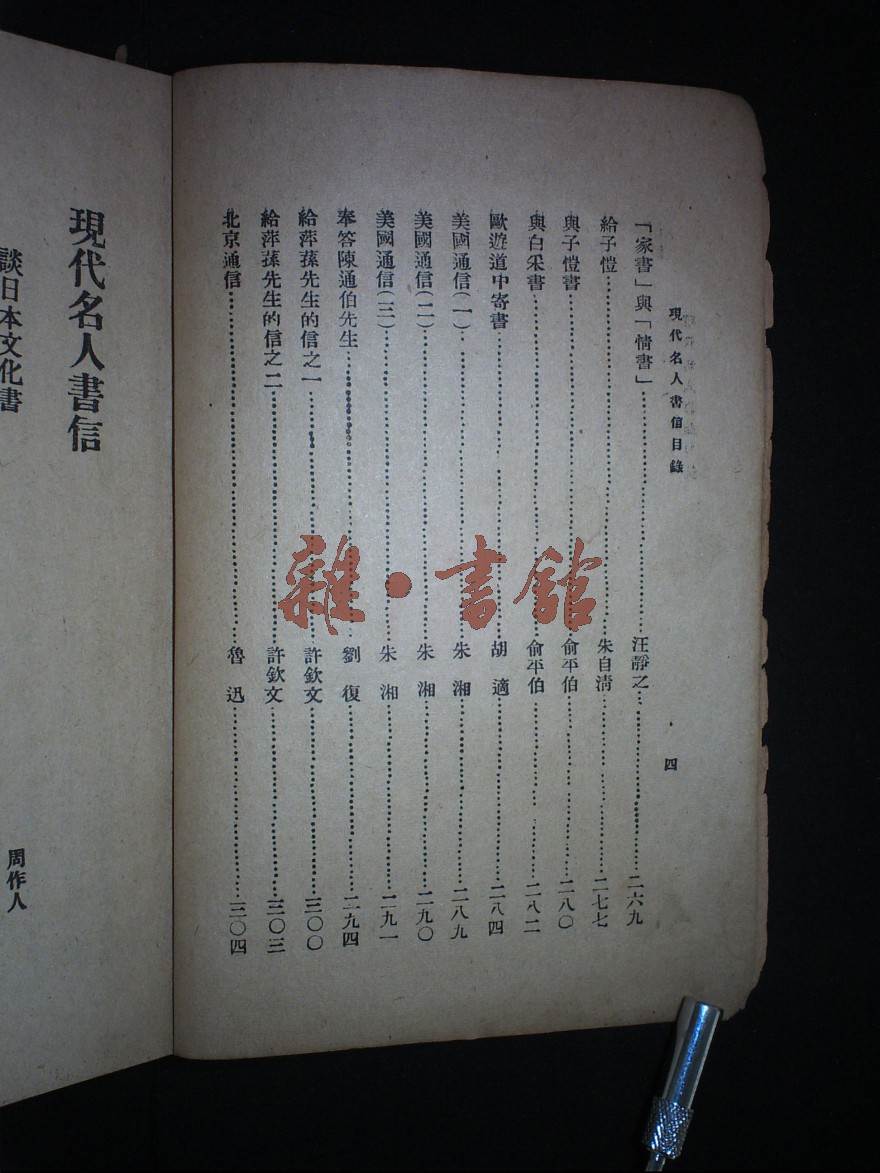 現代名人書信目錄
四
「家書」與「情書」 汪靜之 二六九
給子愷 朱自清 二七七
與子愷書 俞平伯 二八〇
與白采書 俞平伯 二八二
歐遊道中寄書 胡適 二八四
美國通信(一) 朱湘 二八九
美國通信(二) 朱湘 二九〇
美國通信(三) 朱湘 二九一
奉答陳通伯先生 劉復 二九四
給萍蓀先生的信之一 許欽文 三〇〇
給萍蓀先生的信之二 許欽文 三〇三
北京通信 魯迅 三〇四
現代名人書信
談日本文化書
周作人
雜·書館